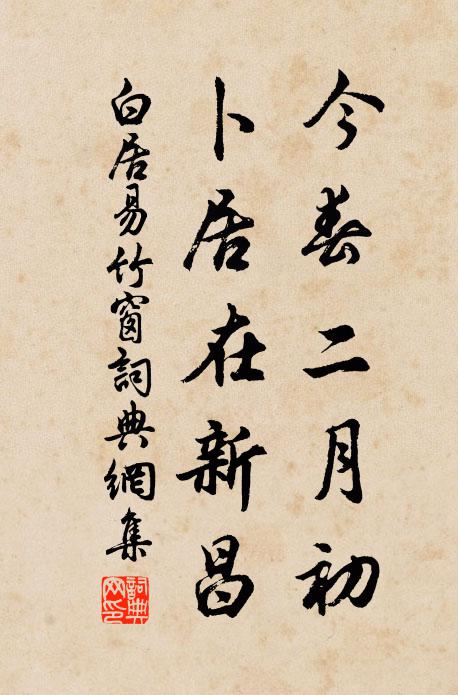 今春二月初
卜居在新昌
白居易竹窗詞典網集
詞典
网印